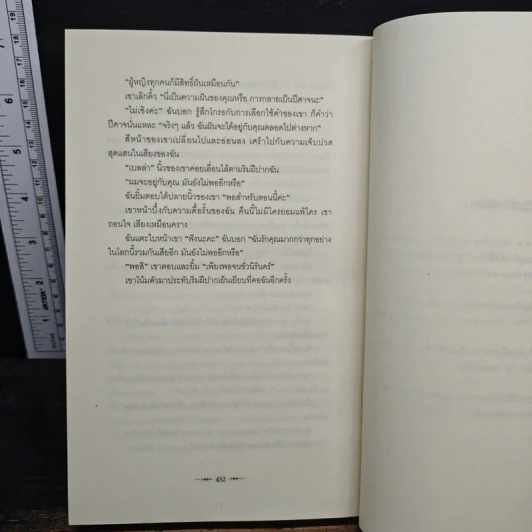 “ผู้หญิงทุกคนก็มีสิทธิ์ฝันเหมือนกัน”
เขาเลิกคิ้ว “นี่เป็นความฝันของคุณหรือ การกลายเป็นปีศาจนะ”
“ไม่เชิงค่ะ” ฉันบอก รู้สึกโกรธกับการเลือกใช้คำของเขา ก็คำว่า
ปีศาจนั่นแหละ “จริงๆ แล้ว ฉันฝันจะได้อยู่กับคุณตลอดไปต่างหาก”
สีหน้าของเขาเปลี่ยนไปและอ่อนลง เศร้าไปกับความเจ็บปวด
สุดแสนในเสียงของฉัน
“เบลล่า” นิ้วของเขาค่อยเลื่อนไล้ตามริมฝีปากฉัน
“ผมจะอยู่กับคุณ มันยังไม่พออีกหรือ”
ฉันยิ้มตอบใต้ปลายนิ้วของเขา “พอสำหรับตอนนี้ค่ะ”
เขาหน้าบึ้งกับความดื้อรั้นของฉัน คืนนี้ไม่มีใครยอมแพ้ใคร เขา
ถอนใจ เสียงเหมือนคราง
ฉันแตะใบหน้าเขา “ฟังนะคะ” ฉันบอก “ฉันรักคุณมากกว่าทุกอย่าง
ในโลกนี้รวมกันเสียอีก มันยังไม่พออีกหรือ”
“พอสิ” เขาตอบและยิ้ม “เพียงพอจนชั่วนิรันดร์”
เขาโน้มตัวมาประทับริมฝีปากเย็นเยียบที่คอฉันอีกครั้ง
492